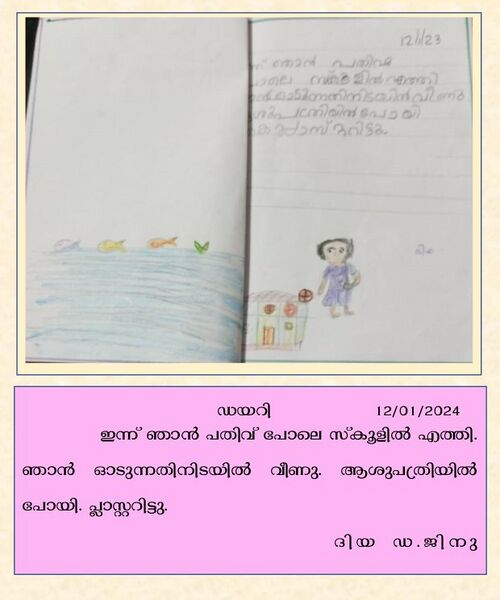 12/1/23
ന്ന് ഞാൻ പതിവ
പോലെ സ്കൂളിൽ എത്തി
ൻ ഓടുന്നതിനിടയിൽ വീണു
ശുപത്രിയിൽ പോയി
പ്ലാസ്റ്ററിട്ടു.
ദിയ
ഡയറി 12/01/2024
ഇന്ന് ഞാൻ പതിവ് പോലെ സ്കൂളിൽ എത്തി.
ഞാൻ ഓടുന്നതിനിടയിൽ വീണു. ആശുപത്രിയിൽ
പോയി. പ്ലാസ്റ്ററിട്ടു.
ദിയ ഡ.ജിനു